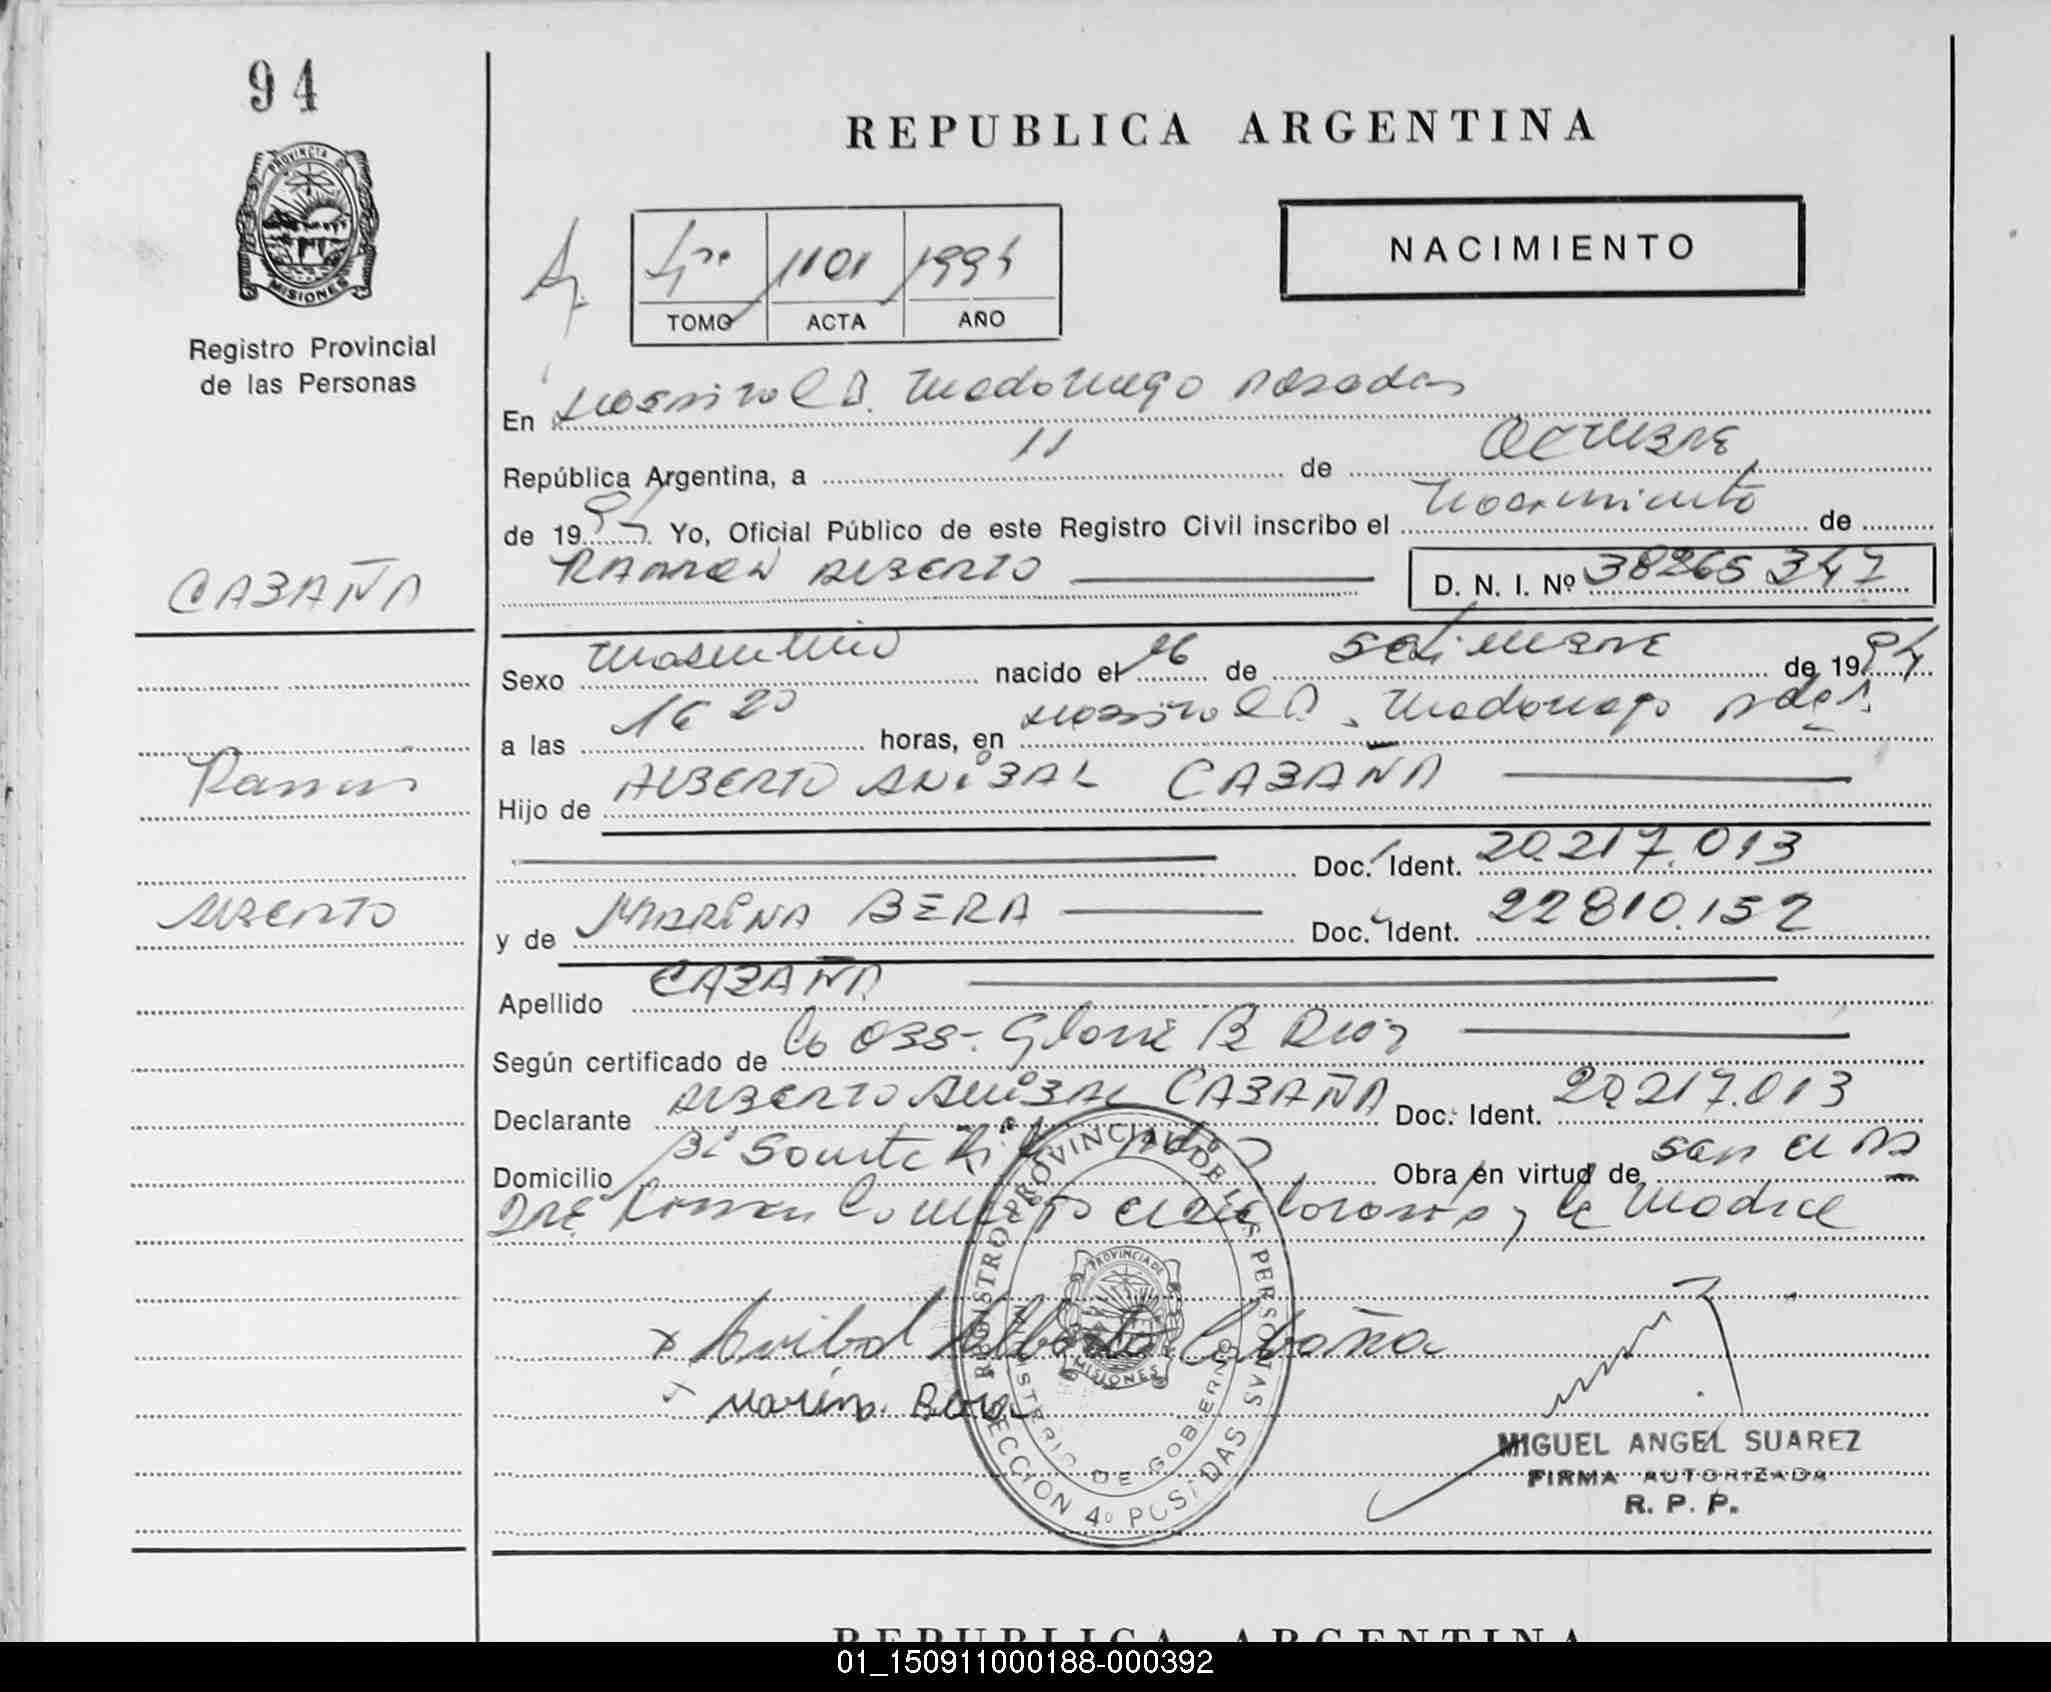 94
REPUBLICA ARGENTINA
PROVINCIA DE
MISIONES
Registro Provincial
de las Personas
1101 1994
TOMO ACTA AÑO
NACIMIENTO
En Hospital R. Madariaga Posadas
República Argentina, a 11 de Octubre
de 1994 Yo, Oficial Público de este Registro Civil inscribo el Nacimiento de
RAMON ALBERTO D. N. I. Nº 38265347
CABAÑA
Sexo Masculino nacido el 26 de Setiembre de 1994
a las 16 20 horas, en Hospital R. Madariaga Pdas.
Ramón
Hijo de ALBERTO ANIBAL CABAÑA
Doc. Ident. 20.217.013
Alberto
y de MARINA BERA Doc. Ident. 22810.152
Apellido CABAÑA
Según certificado de La Obs. Gloria B
Declarante ALBERTO ANIBAL CABAÑA Doc. Ident. 20.217.013
Domicilio Obra en virtud de ser el
y la Madre
Anibal Alberto Cabaña
Marina Bera
REGISTRO PROVINCIAL DE LAS PERSONAS
MINISTERIO DE GOBIERNO
SECCION 4º POSADAS
PROVINCIA DE
MISIONES
MIGUEL ANGEL SUAREZ
FIRMA AUTORIZADA
R. P. P.
REPUBLICA ARGENTINA
01_150911000188-000392